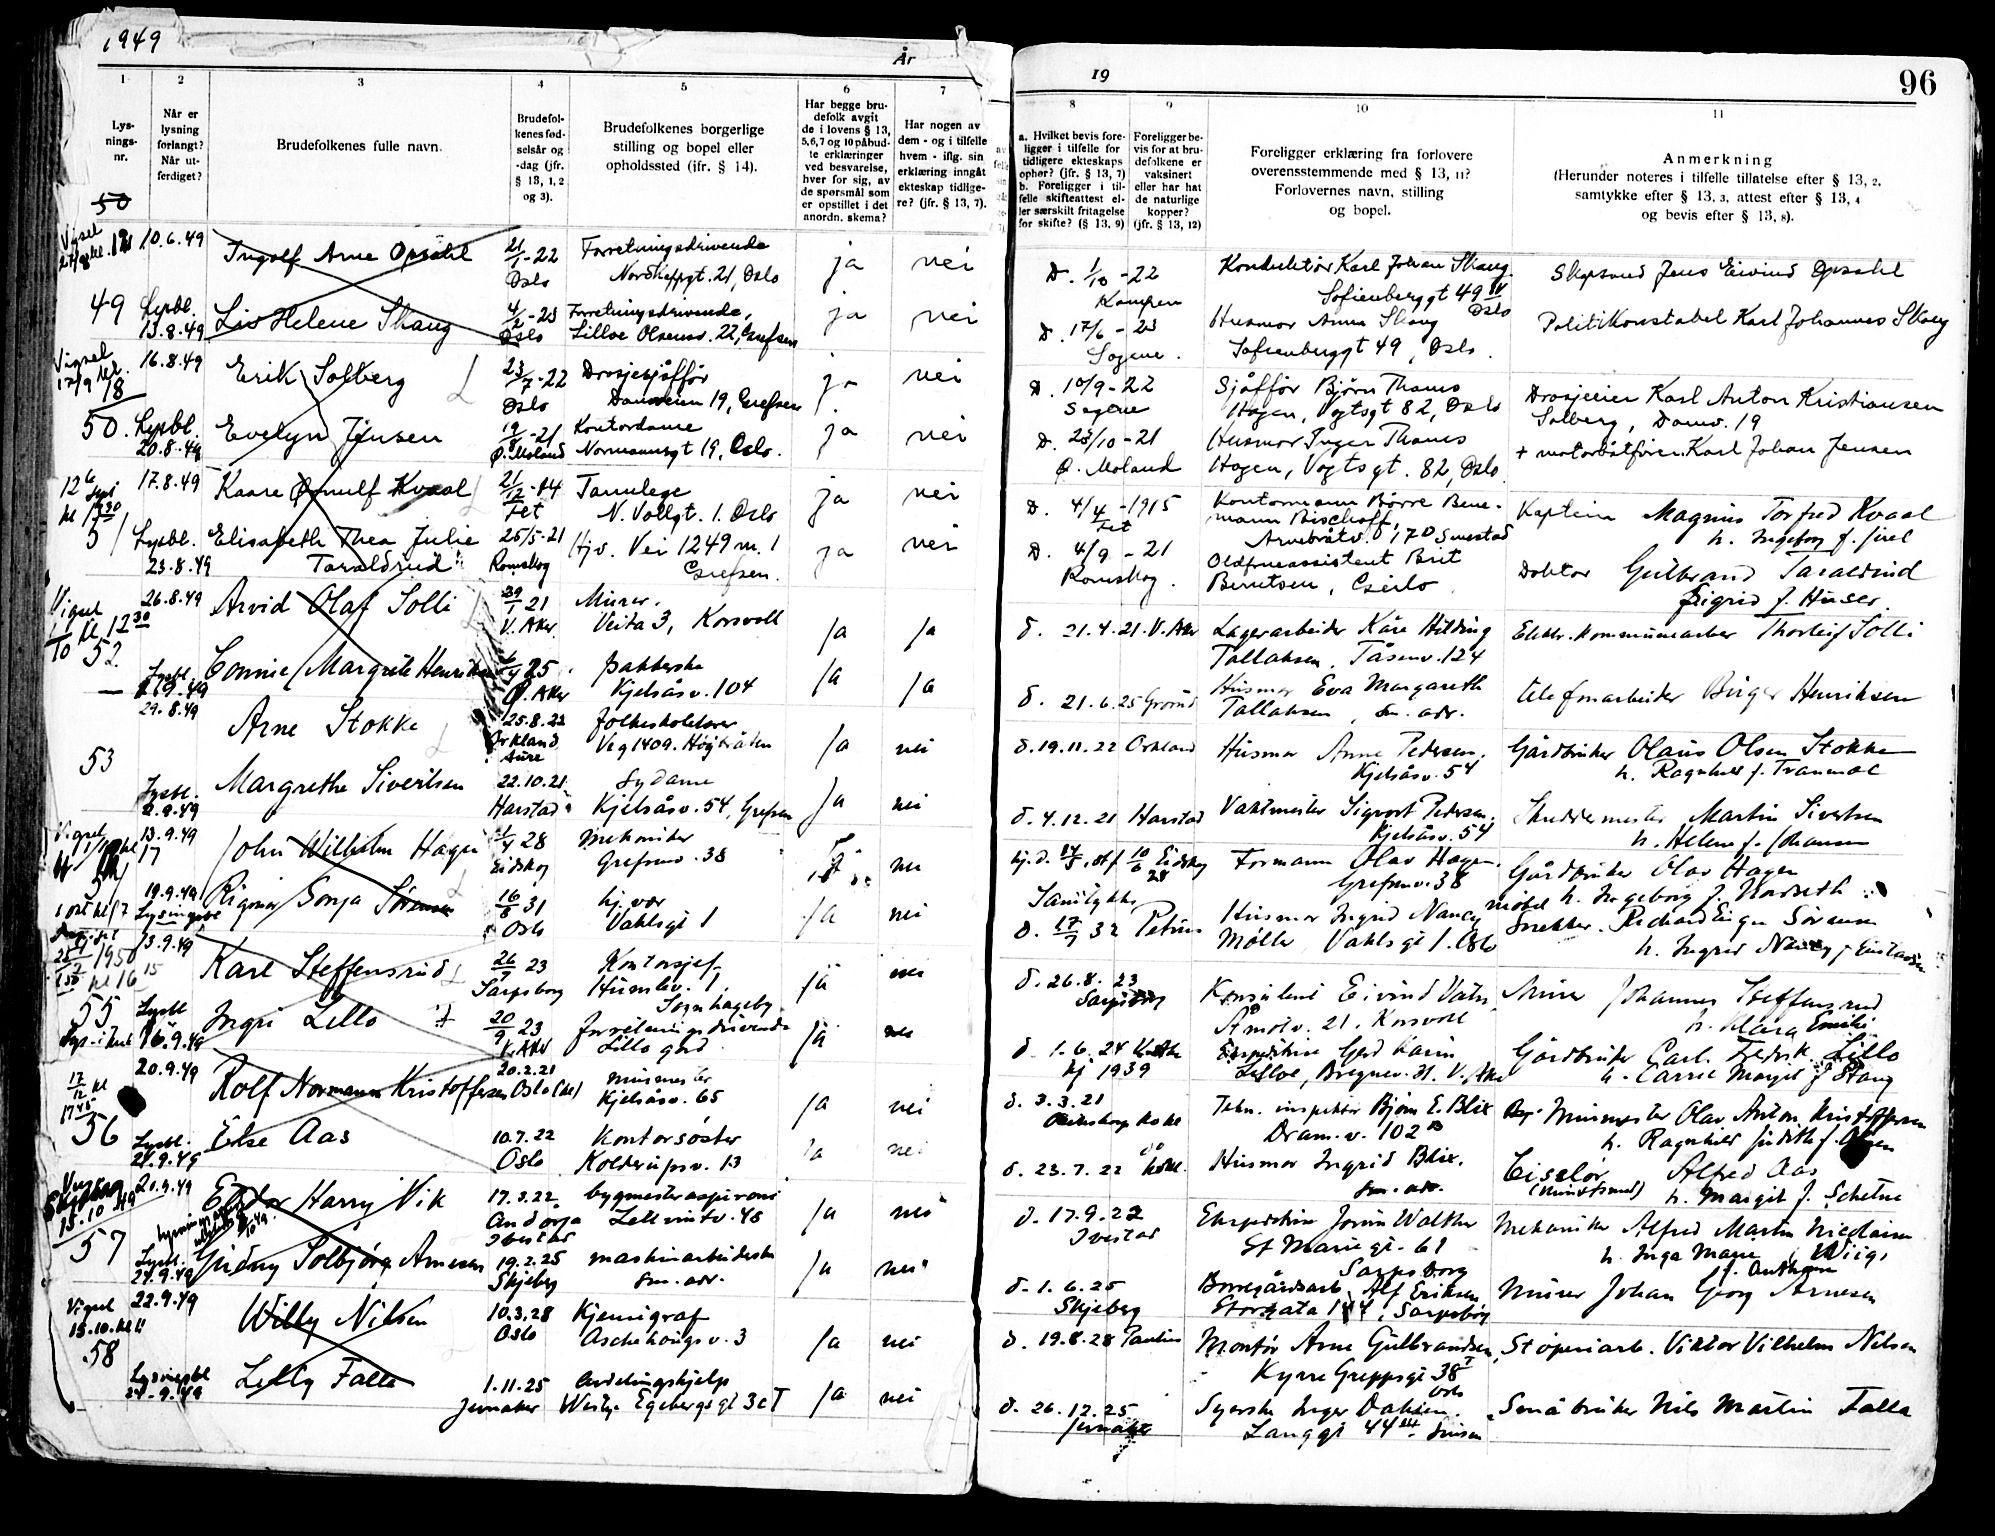 1949
År
1
Lys-
nings-
nr.
2
Når er
lysning
forlangt?
Når ut-
ferdiget?
3
Brudefolkenes fulle navn.
4
Brudefol-
kenes fød-
selsår og
-dag (jfr.
§ 13, 1, 2
og 3).
5
Brudefolkenes borgerlige
stilling og bopel eller
opholdssted (ifr. § 14).
6
Har begge bru-
defolk avgit
de i lovens § 13,
5,6,7 og 10 påbud-
te erklæringer
ved besvarelse,
hver for sig, av
de spørsmål som
er opstillet i det
anordn. skema?
7
Har nogen av
dem - og i tilfelle
hvem - iflg. sin
erklæring inngått
ekteskap tidlige-
re? (jfr. § 13, 7).
50
10.6.49 Ingolf Arne Opsahl 21/1-22 Forretningsdrivende ja nei
Oslo Nordkappgt. 21, Oslo
49 Lysbl. Liv Helene Skaug 4/2-23 Forretningsdrivende, ja nei
13.8.49 Oslo Lilloe Olsensv. 22, Grefsen
Vigsel 16.8.49 Erik Solberg 23/7-22 Drosjesjåffør ja nei
17/9 Oslo Damveien 19, Grefsen
50. Lysbl. Evelyn Jensen -21 Kontordame ja nei
20.8.49 Ø. Moland Normannsgt 19, Oslo.
17.8.49 Kaare Ørnulf Kvaal 21/12-14 Tannlege ja nei
Fet N. Vollgt. 1. Oslo
51 Lysbl. Elisabeth Thea Julie 25/5-21 Hjv. Vei 1249 nr. 1 ja nei
23.8.49 Taraldrud Romskog Grefsen.
Vigsel 26.8.49 Arvid Olaf Solli 21 Murer. ja ja
1/10 kl 12 30 V. Aker Veita 3, Korsvoll
52 Lysbl. Connie Margrete Henriksen 25 pakkerske ja ja
Ø. Aker Kjelsåsv. 104
29.8.49 Arne Stokke 25.8.22 folkeskolelærer ja nei
Orkland Veg 1409. Høybråten
Aure
53 Margrethe Sivertsen 22.10.21 Sydame ja nei
Lysbl. 2.9.49 Harstad Kjelsåsv. 54, Grefsen
Vigsel 13.9.49 John Wilhelm Hagen 28 mekaniker nei
Eidskog Grefsenv. 38
19.9.49 Rigmor Sonja Sørensen 16/8 31 hj. vær ja nei
Oslo Vahlsgt 1
13.9.49 Karl Steffensrud 26/9 23 Kontorsjef ja nei
1950 Sarpsborg Humlev. 1,
Sognhageby
55 Lysbl. Ingri Lillo 20/9 23 forretningsdrivende ja nei
16.9.49 V. Aker Lillo gård
20.9.49 Rolf Normann Kristoffersen 20.2.21 Murmester ja nei
Oslo Kjelsåsv. 65
56 Lysbl. Else Aas 10.7.22 Kontorsøster ja nei
Oslo Kolderupsv. 13
20.9.49 Harry Vik 17.3.22 bygmesteraspirant ja nei
15.10.49 Andørja Zellvintv. 48
Ibestad
57 Lysbl. Gudny Solbjørg Arnesen 19.2.25 maskinarbeiderske ja nei
24.9.49 Skjeberg sm. adr.
Vigsel 22.9.49 Willy Nilsen 10.3.28 Kjemigraf ja nei
15.10. Oslo Aschehougsv. 3
58 Lysningsbl Lilly Falla 1.11.25 avdelingshjelp ja nei
24-9.49 Jevnaker Westye Egebergsgt 3c I
19
96
8
a. Hvilket bevis fore-
ligger i tilfelle for
tidligere ekteskaps
ophør? (jfr. § 13, 7)
b. Foreligger i til-
felle skifteattest el-
ler særskilt fritagelse
for skifte? (§ 13, 9)
9
Foreligger be-
vis for at bru-
defolkene er
vaksinert
eller har hat
de naturlige
kopper?
(jfr. § 13, 12)
10
Foreligger erklæring fra forlovere
overensstemmende med § 13, 11?
Forlovernes navn, stilling
og bopel.
11
Anmerkning
(Herunder noteres i tilfelle tillatelse efter § 13, 2,
samtykke efter § 13, 3, attest efter § 13, 4
og bevis efter § 13, 8).
D. 1/10-22 Konduktør Karl Johan Skaug. Skipsmd Jens Eivind Opsahl
Kampen Sofienberggt 49 Oslo
D. 17/6-23 Husmor Anna Skaug Politikonstabel Karl Johannes Skaug
Sagene. Sofienberggt 49, Oslo.
D. 10/9-22 Sjåffør Bjørn Thams Drosjeeier Karl Anton Kristiansen
Sagene Hagen, Vogtsgt 82, Oslo Solberg, Damv. 19
D. 23/10-21 Husmor Inger Thams + motorbåtfører Karl Johan Jensen
Ø. Moland Hagen, Vogtsgt. 82, Oslo
D. 4/4-1915 Kontormann Bjørre Bene- Kaptein Magnus Torfred Kvaal
Fet mann Bischoff, h. Ingeborg f. Juel
Arnebråtv. 170 Smestad
D. 4/9-21 Oldfrueassistent Brit Doktor Gulbrand Taraldrud
Romskog. Berntsen, Sigrid f. Huser.
d. 21.4.21. V. Aker Lagerarbeider Kåre Hilding Elektr. kommunearber Thorleif Solli
Tallaksen. Tåsenv. 124
d. 21.6.25 Grorud Husmor Eva Margareth telefonarbeider Birger Henriksen
Tallaksen, sm. adr.
d. 19.11.22 Orkland Husmor Anne Pedersen, Gårdbruker Olaus Olsen Stokke
Kjelsåsv. 54 h. Ragnhild f. Tranmæl
d. 4.12.21 Harstad Vaktmester Sigvart Pedersen, Skreddermester Martin Sivertsen
Kjelsåsv. 54 h. Helene f. Johansen
Eidskog Formann Olav Hagen. Gårdbruker Olav Hagen
Grefsenv. 38 h. Ingeborg f. Nordseth
Samtykke
d. 17/7 32 Petrus Husmor Ingrid Nancy Snekker. Richard Sørensen
Møller Vahlsgt 1. Oslo h. Ingrid Nancy f.
d. 26.8.23 Konsulent Eivind Vatn Murer Johannes Steffensrud
Sarpsborg Åmotv. 21. Korsvoll h. Klara Emilie
d. 1.6.24 V. Aker Gerd Karin Gårdbruker Carl Fredrik Lillo
kj 1939 Lilloe, Bregnev. 31. V. Aker h. Carrie Margit f Stang
d. 3.3.21 Tekn. inspektør Bjørn E. Blix Murmester Olav Anton Kristoffersen
Dram.v. 102 B h. Ragnhild Judith f. Olsen
d. 23.7.22 Husmor Ingrid Blix. Ciselør Alfred Aas
sm. adr. h. Margit f. Schetne
d. 17.9.22 Ekspeditrise Jorun Walther Mekaniker Alfred Martin Nicolaisen
Ibestad St Mariegt. 61 h. Inga Marie Wiig,
Sarpsborg
d. 1.6.25 Borregårdsarb. Alf Eriksen Murer Johan Georg Arnesen
Skjeberg Storgata 144, Sarpsborg
d. 19.8.28 Paulus Montør Arne Gulbrandsen, Støperiarb. Viktor Vilhelm Nilsen
Kyrre Greppsgt 38 I
Oslo
d. 26.12.25 Syerske Inger Dahlen. Småbruker Nils Martin Falla
Jevnaker Langgt 44